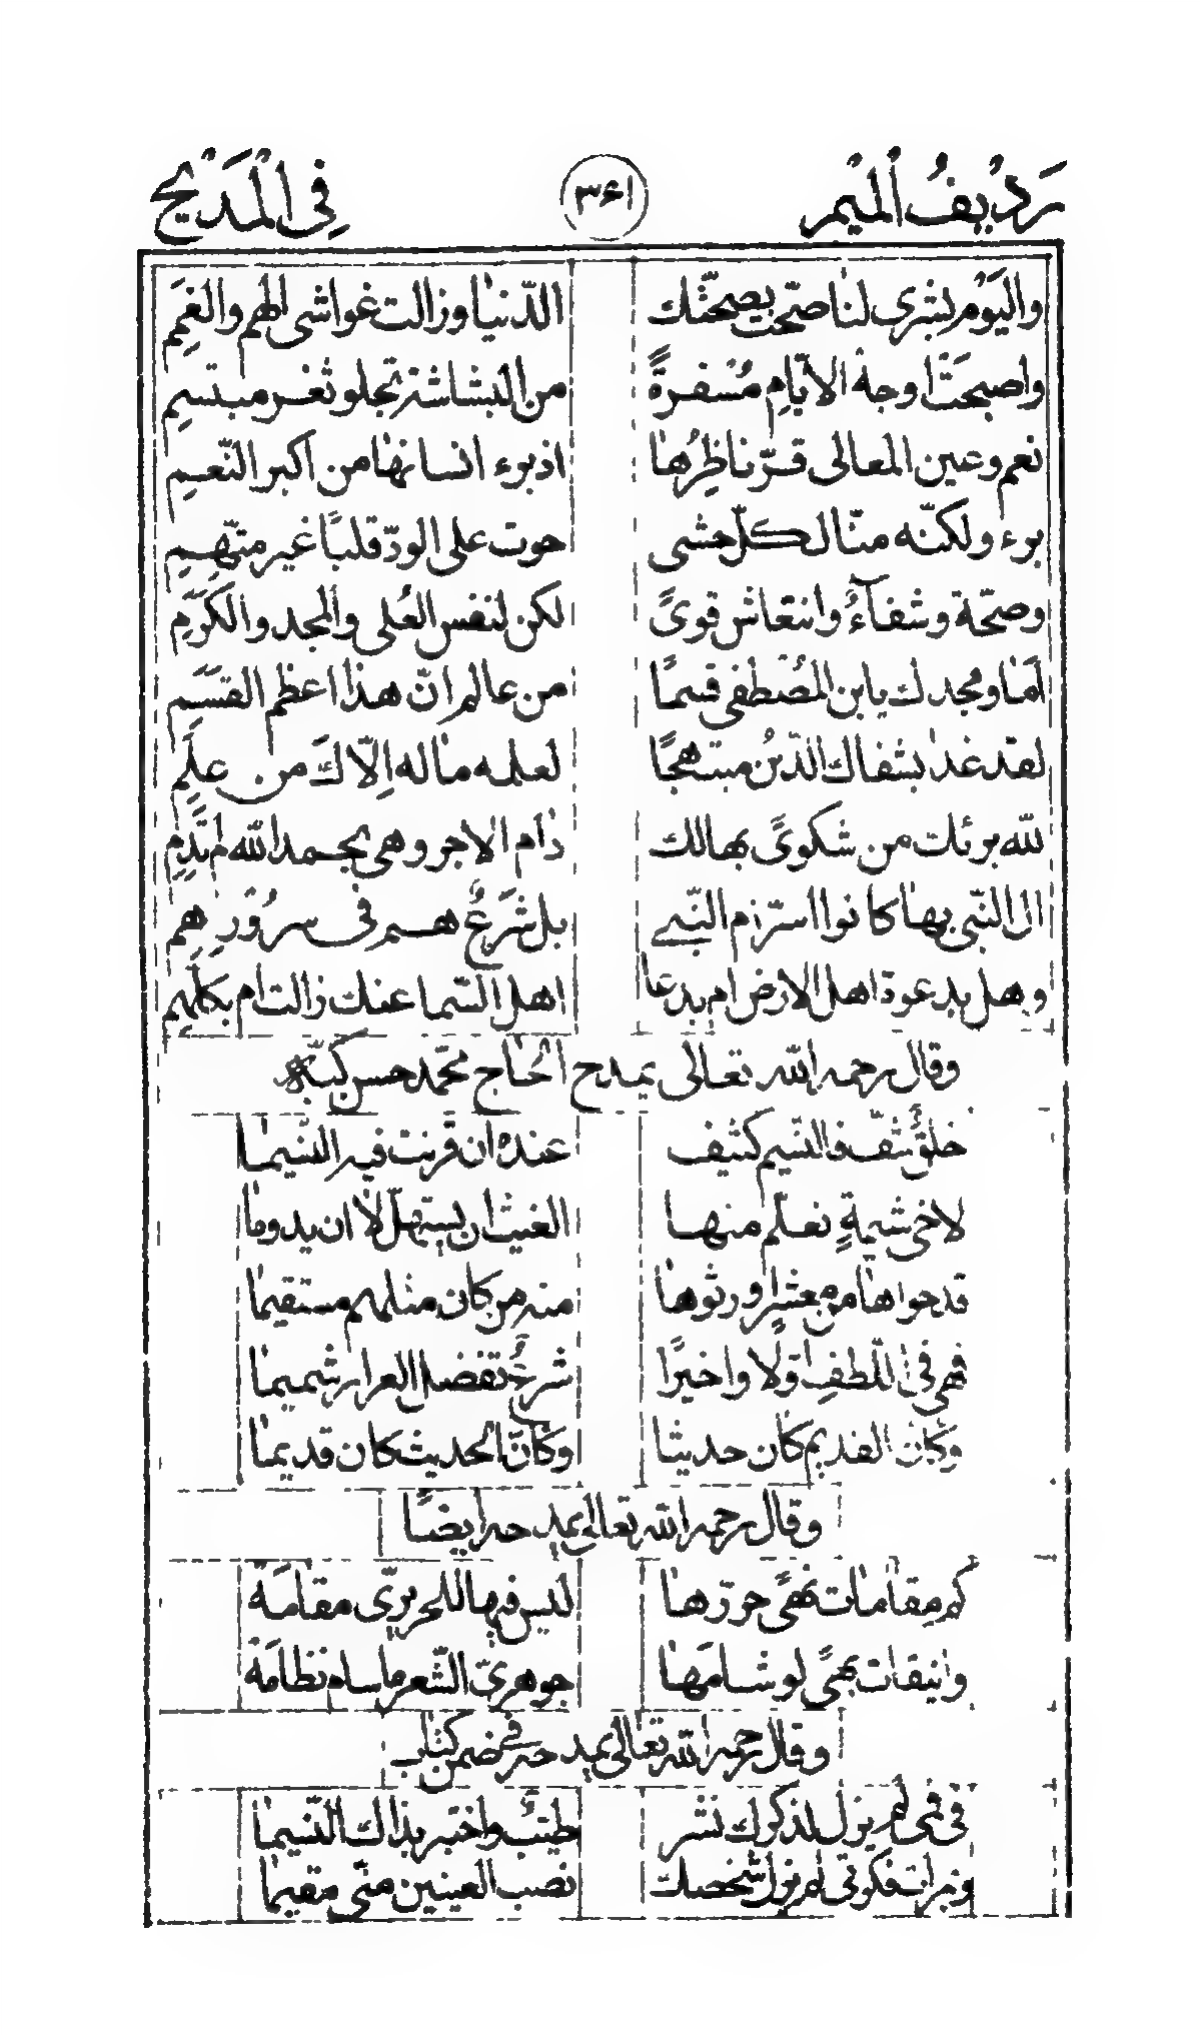 رَدِيفُ الْمِيْمِ ٣٤١ فِى الْمَدِيْحِ
واليَوْمِ بشرى لنا صحّت بصحّتك الدّنيا وزالت غواشى الهم والغِمَمِ
واصبحَتْ اوجهُ الايّامِ مُسْفرةً من البشاشة تجلو ثغر مبتسم
نعم وعين المعالى قرّ ناظِرُها اذ بوء انسانها من اكبر النّعمِ
بوء ولكنّه منّا لكلّ حشى حوت على الودّ قلبًا غير متّهم
وصحّة وشفآءُ وانتعاش قوىً لكن لنفس العُلى والمجد والكَرَمِ
اَمَا ومجدك يابن المُصْطفى قسمًا من عالم انّ هذا اعظم القسَمِ
لقد غدا بشفاك الدّينُ مبتهجًا لعلمه ماله اِلّاكَ من علَمِ
للّه برئت من شكوىً بها لك دام الاجر وهى بحمد اللّه لم تدُمِ
ال النّبى بها كانوا اسرّ زم النّبى بل شَرَعٌ هم فى سرُوْرِهِم
وهل بدعوة اهل الارض ام بدعا اهل السّما عنك زالت ام بكلّهم
وقال رحمه اللّه تعالى يمدح الحاج محمّد حسن كبّه
خلقٌ شفّ فالنّسيم كثيف عنده ان قرنت فيه النّسيما
لاخى شيمةٍ تعلّم منها الغيث ان يستهلّ لا ان يدوما
قد حواها من معشرٍ ورثوها منه من كان مثلهم مستقيما
فهى فى اللّطفِ اوّلا واخيرًا شرعٌ تفضل العرار شميما
وكان القديم كان حديثا وكأنّ الحديث كان قديما
وقال رحمه اللّه تعالى يمدحه ايضًا
كم مِقامات نهىً حرّرها ليس فيها للحريرّى مقامَهْ
وانيقات بهىً لو شامَها جوهرىّ الشّعر ما سام نظامَهْ
وقال رحمه اللّه تعالى يمدحه فى ضمن كتاب
فى فمى لم يزل لذكرك نشر طيّبٌ واختبر بذاك النّسيما
ومرات فكرتى لم يزل شخصك نصب العينين منّى مقيما